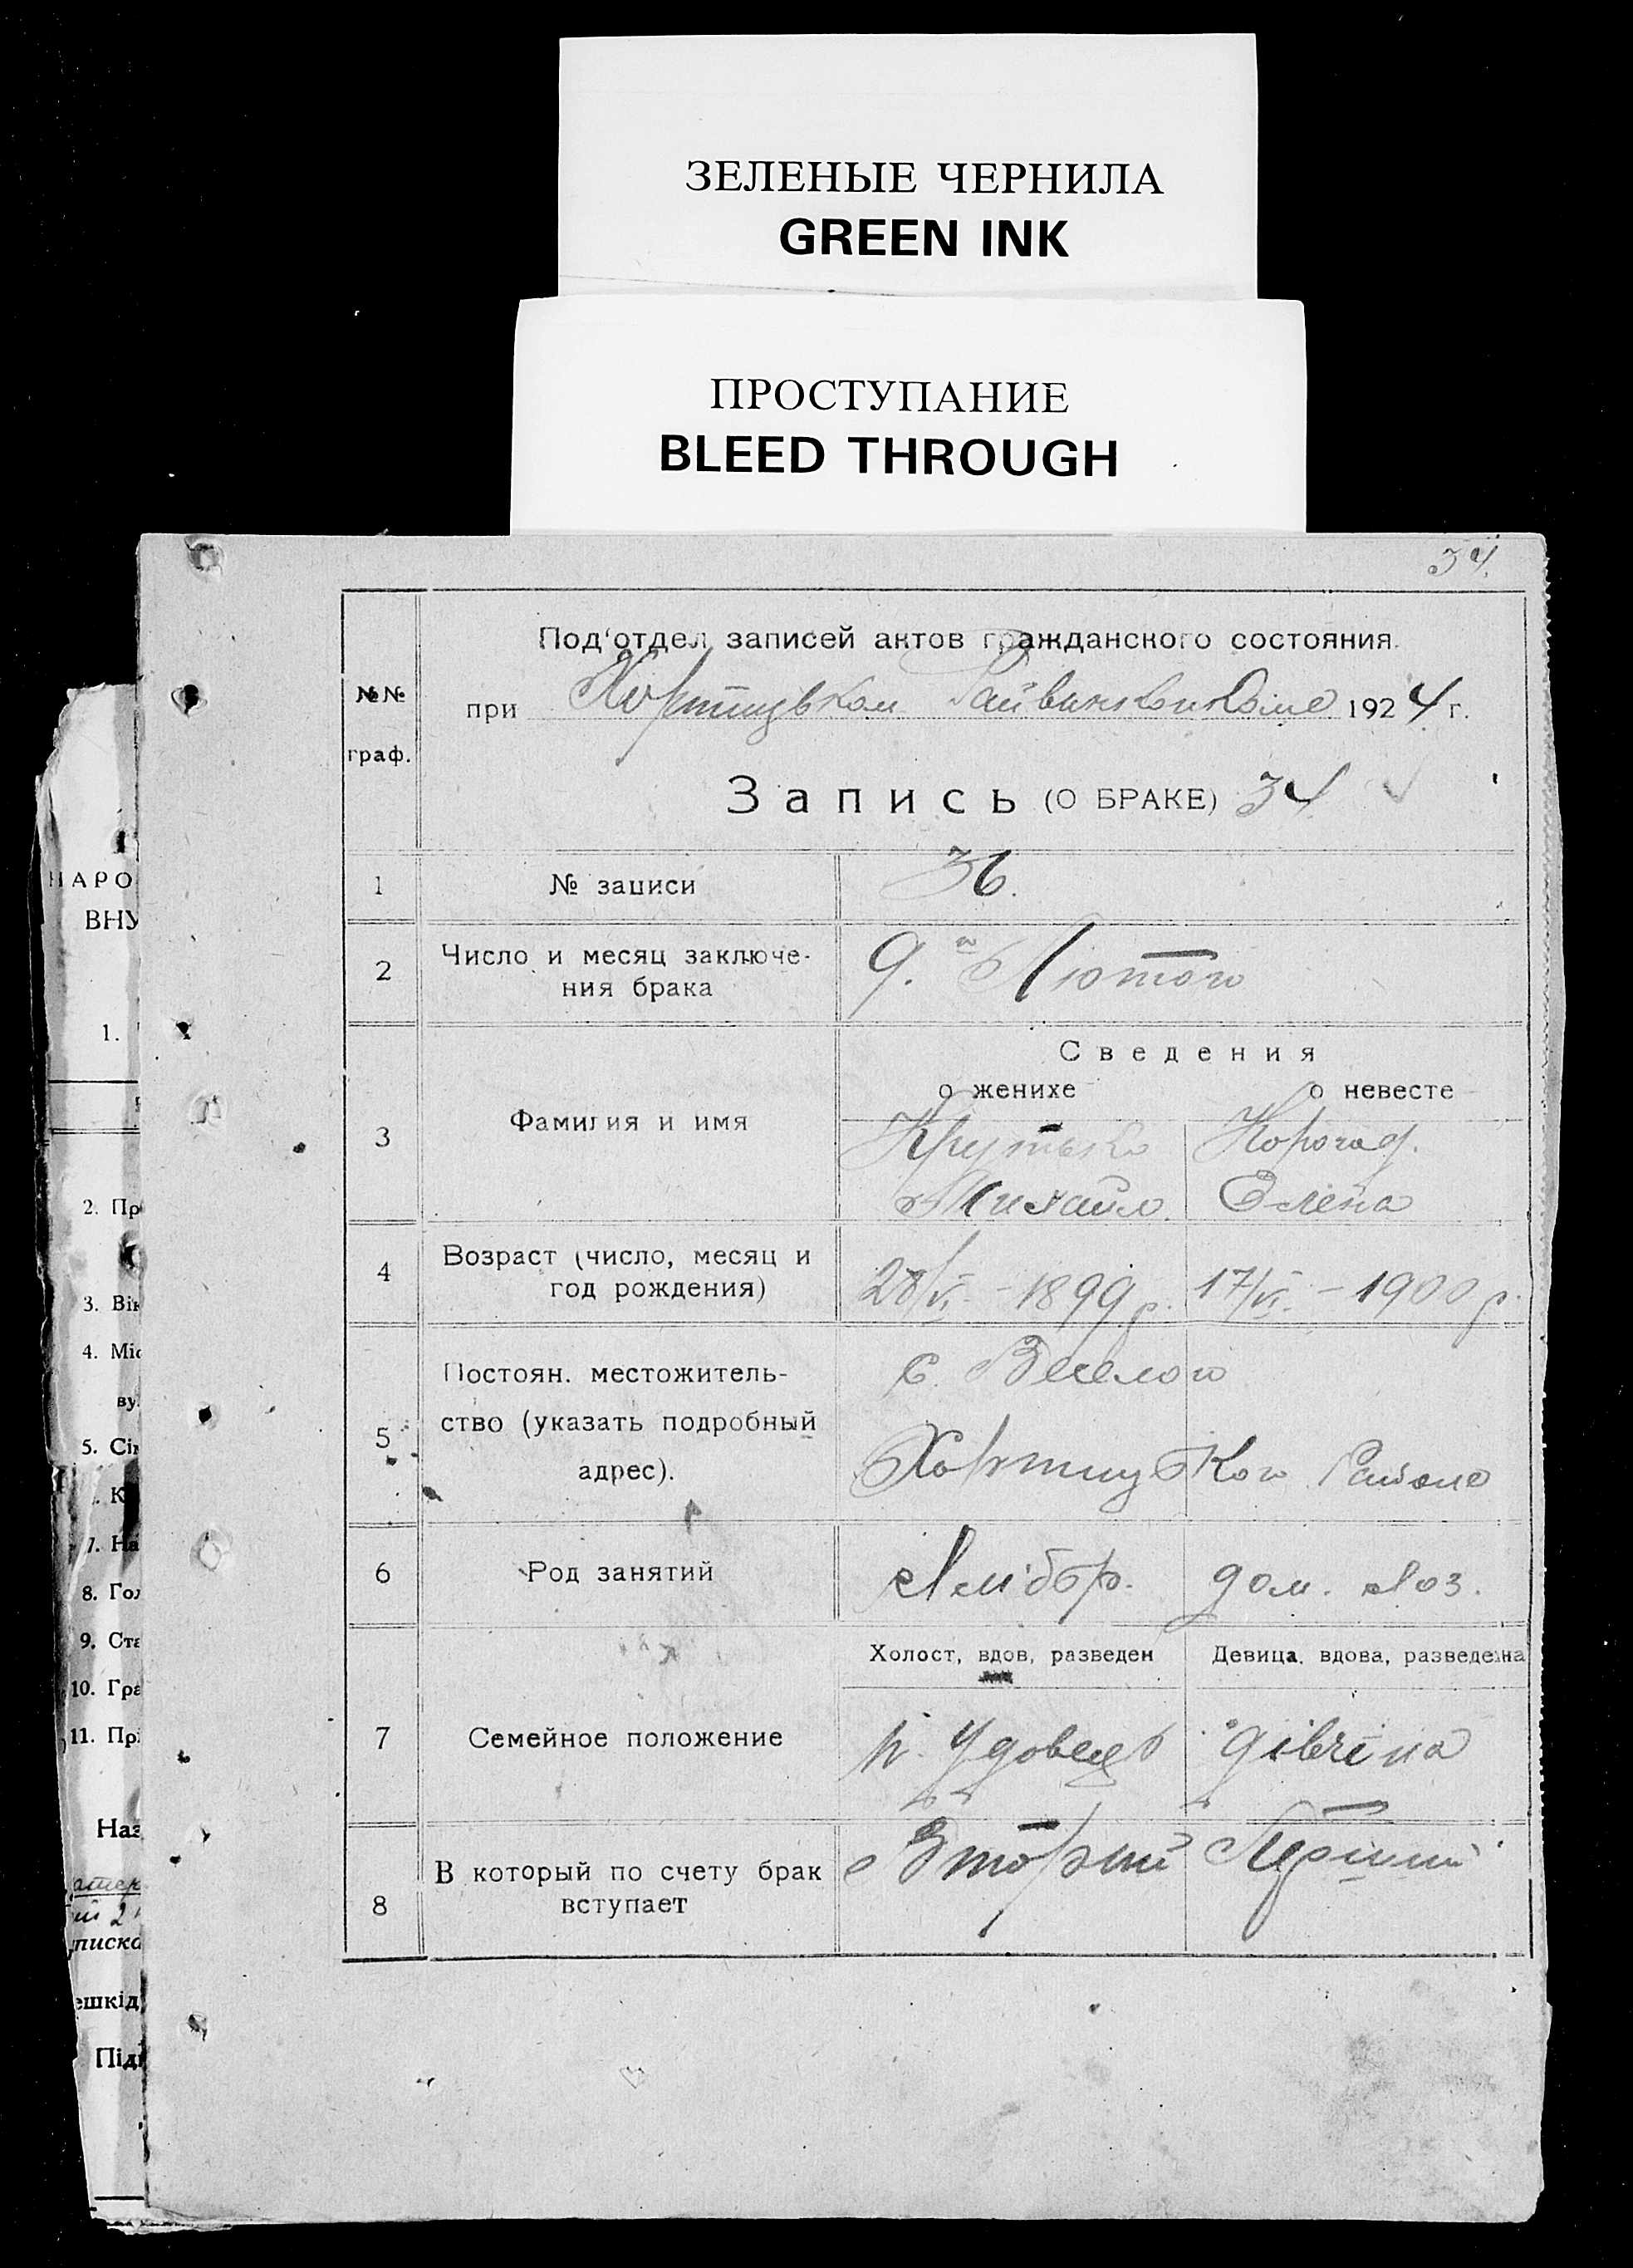 ЗЕЛЕНЫЕ ЧЕРНИЛА
GREEN INK
ПРОСТУПАНИЕ
BLEED THROUGH
34.
Под'отдел записей актов гражданского состояния.
№№
граф.
при 1924 г.
Запись (О БРАКЕ) 34
1 № записи 36.
2 Число и месяц заключе-
ния брака
9. Лютого
Сведения
о женихе о невесте
3 Фамилия и имя
Крутько
Михайло Елена
4 Возраст (число, месяц и
год рождения)
28/VI. - 1899 р. 17/VI. - 1900 р.
5 Постоян. местожитель-
ство (указать подробный
адрес).
с. Веселого
Хортицького Района
6 Род занятий
Хлібор. дом. хоз.
Холост, вдов, разведен Девица, вдова, разведена
7 Семейное положение
Удовець дівчина
8 В который по счету брак
вступает
Вторий Перший
НАРО
ВНУ
1.
2. Пр
3. Вік
4. Міс
ву
5. Сі
К
7. На
8. Гол
9. Ста
10. Гра
11. Пр
Наз
писка
ешкід
Під